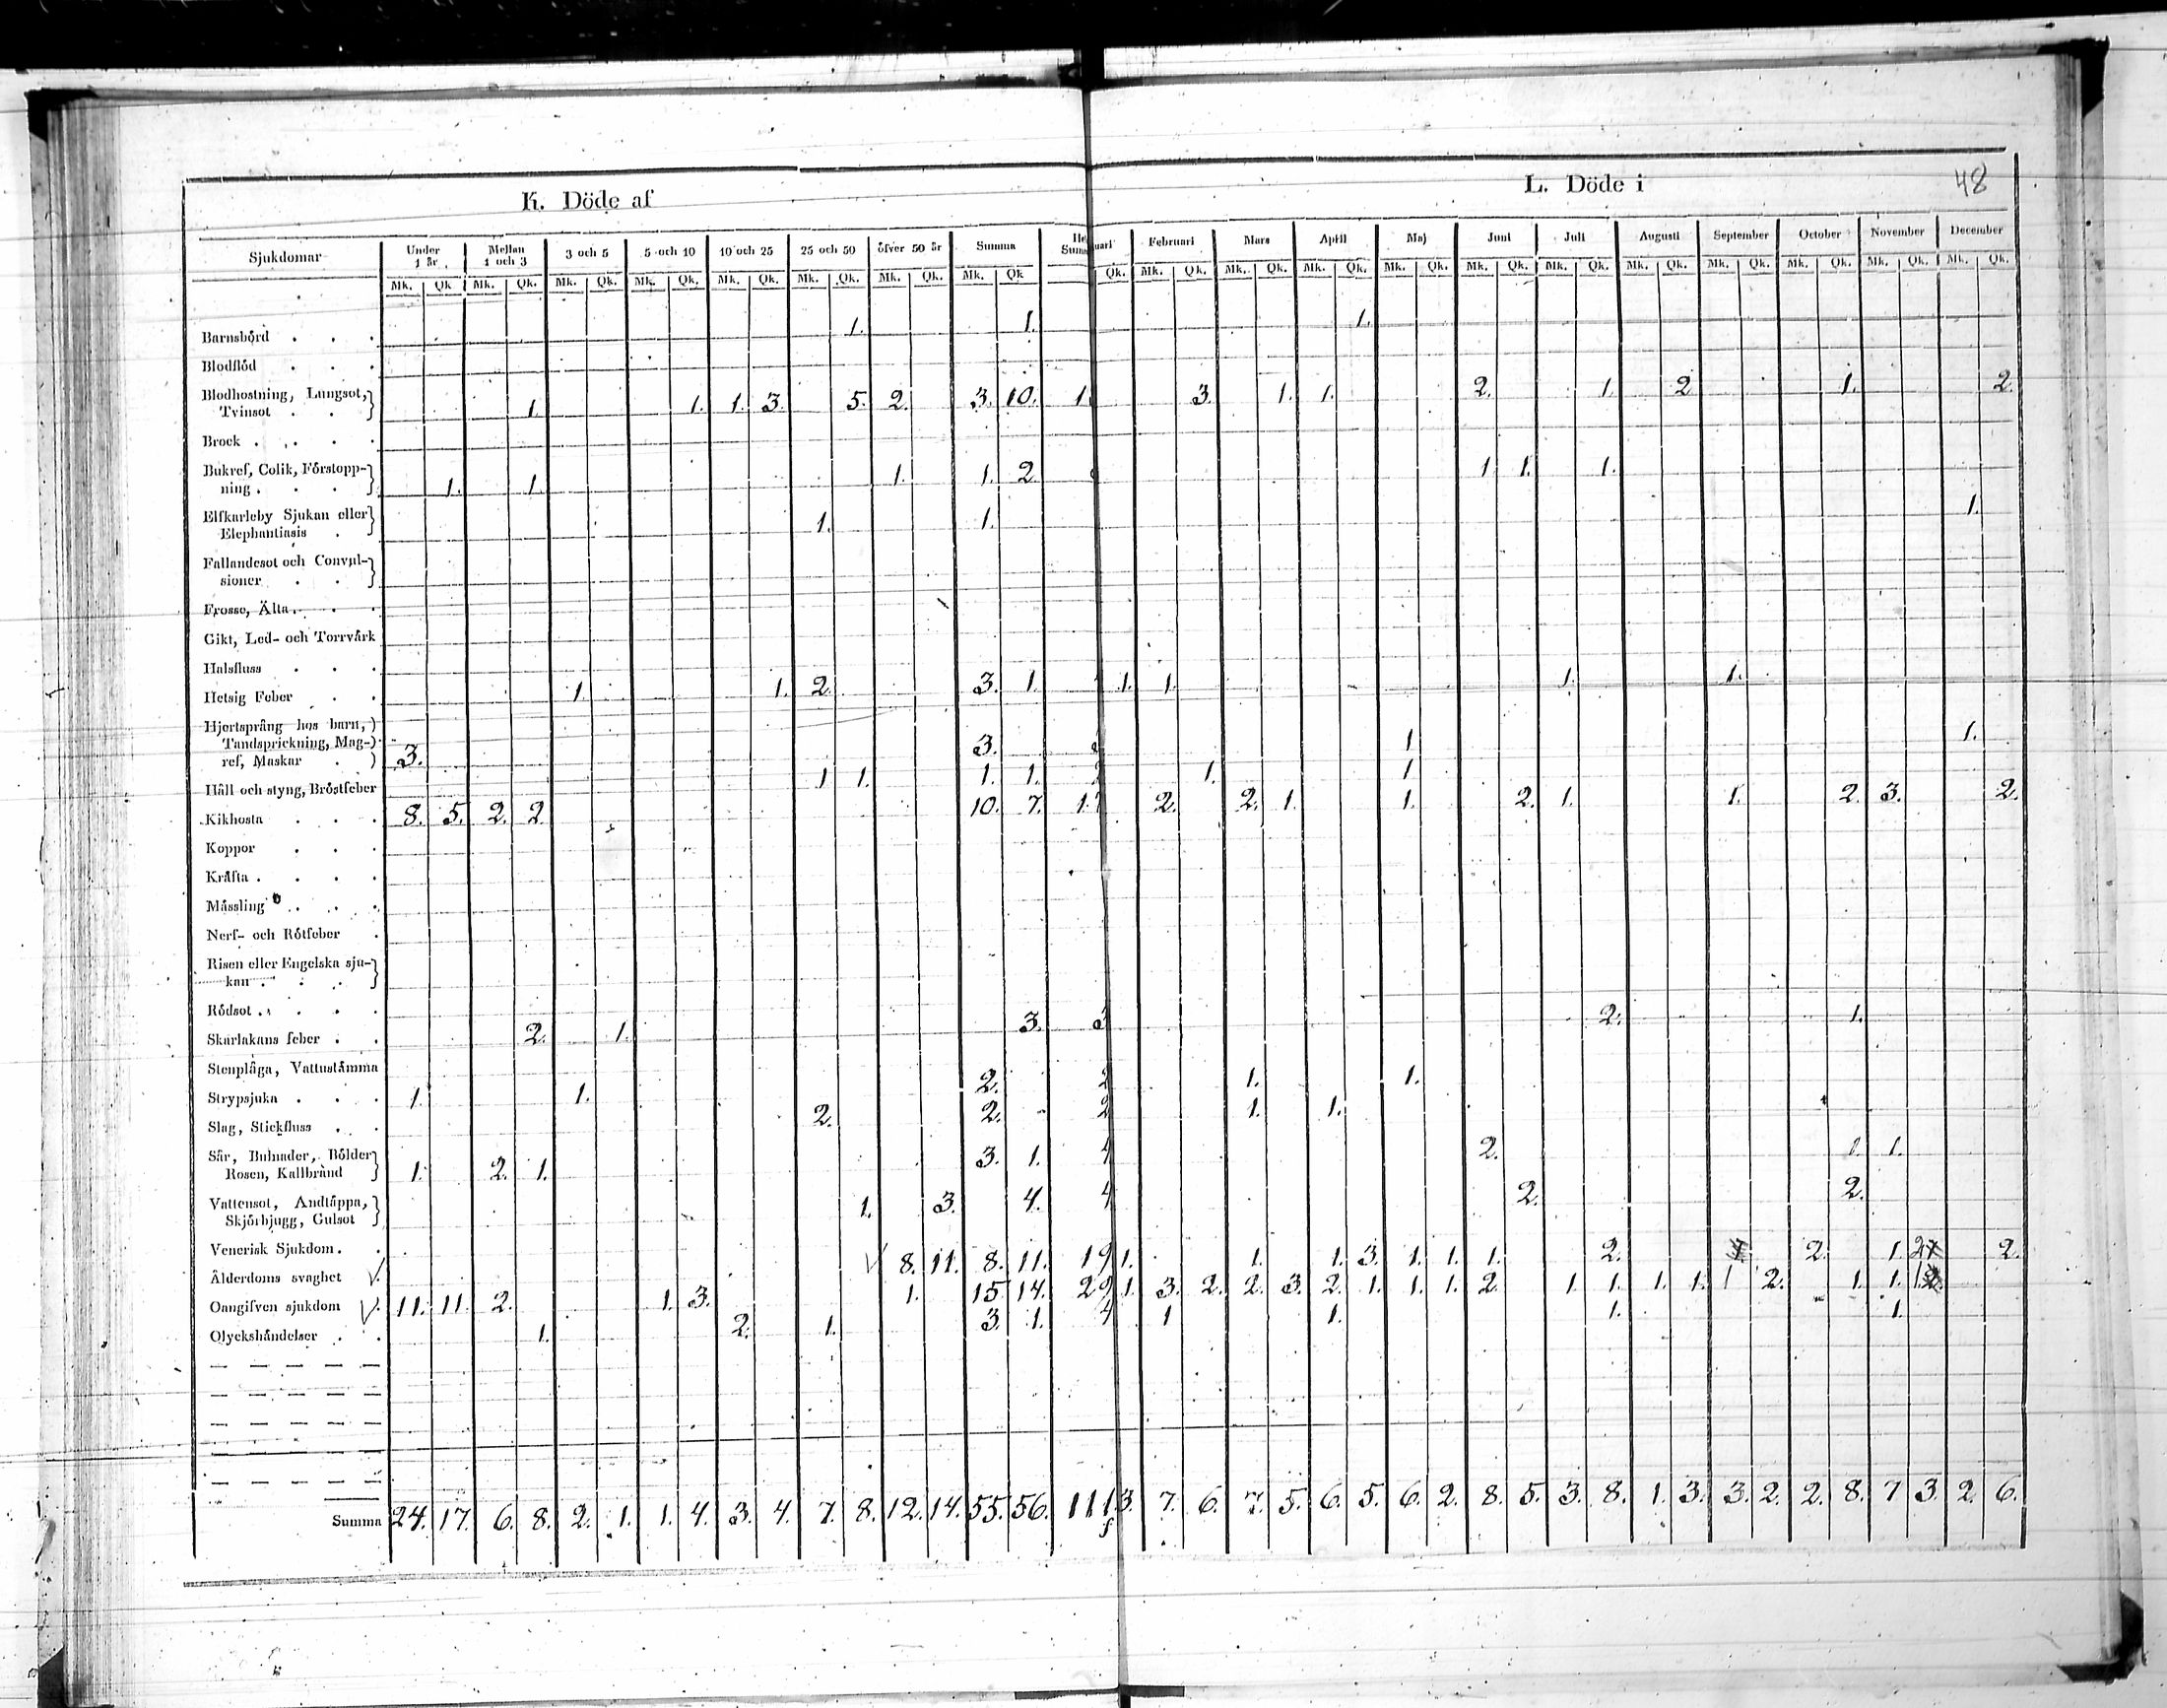 K. Döde af
L. Döde i
48
Sjukdomar Under 1 år Mellan 1 och 3 3 och 5 5 och 10 10 och 25 25 och 50 öfver 50 år Summa Februari Mars April Maj Juni Juli Augusti September October November December
Mk. Qk Mk. Qk. Mk. Qk. Mk. Qk. Mk. Qk. Mk. Qk. Mk. Qk. Mk. Qk Qk. Mk. Qk. Mk. Qk. Mk. Qk. Mk. Qk. Mk. Qk. Mk. Qk. Mk. Qk. Mk. Qk. Mk. Qk. Mk. Qk. Mk. Qk.
Barnsbörd 1. 1. 1.
Blodflöd
Blodhostning, Lungsot,
Tvinsot 1. 1. 1. 3. 5. 2. 3. 10. 3. 1. 1. 2. 1. 2 1. 2.
Brock
Bukref, Colik, Förstopp-
ning 1. 1. 1. 1. 2. 1 1. 1.
Elfkarleby Sjukan eller
Elephantiasis 1. 1. 1.
Fallandesot och Convul-
sioner
Frossa, Älta
Gikt, Led- och Torrvärk
Halsfluss
Hetsig Feber 1. 1. 2. 3. 1. 1. 1. 1. 1.
Hjertsprång hos barn,
Tandsprickning, Mag-
ref, Maskar 3. 3. 1 1.
Håll och styng, Bröstfeber 1 1. 1. 1. 1. 1
Kikhosta 8. 5. 2. 2. 10. 7. 2. 2. 1. 1. 2. 1. 1. 2. 3. 2.
Koppor
Kräfta
Mässling
Nerf- och Rötfeber
Risen eller Engelska sju-
kan
Rödsot
Skarlakans feber 2. 1. 3. 3 2. 1.
Stenplåga, Vattustämma
Strypsjuka 1. 1. 2. 2 1. 1.
Slag, Stickfluss 2. 2. 2 1. 1.
Sår, Bulnader, Bölder
Rosen, Kallbrand 1. 2. 1. 3. 1. 4 2. 1. 1.
Vattensot, Andtäppa,
Skjörbjugg, Gulsot 1. 3. 4. 4 2. 2.
Venerisk Sjukdom
Ålderdoms svaghet 8. 11. 8. 11. 19 1. 1. 1. 3. 1. 1. 1. 2. 2. 1. 2 2.
Oangifven sjukdom 11. 11. 2. 1. 3. 1. 15. 14. 29 1. 3. 2. 2. 3. 2. 1. 1. 1. 2. 1. 1. 1. 1. 1 2. 1. 1. 1.
Olyckshändelser 1. 2. 1. 3. 1. 4 1 1. 1. 1.
Summa 24. 17. 6. 8. 2. 1. 1. 4. 3. 4. 7. 8. 12. 14. 55. 56. 111 3. 7. 6. 7. 5. 6. 5. 6. 2. 8. 5. 3. 8. 1. 3. 3. 2. 2. 8. 7 3. 2. 6.